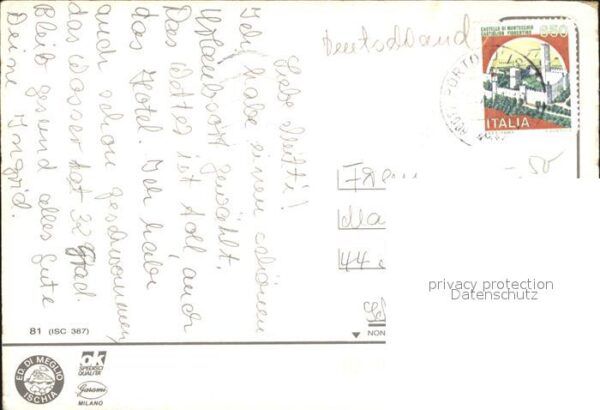 Liebe Mutti!
Ich habe einen schönen
Urlaubsort gewählt.
Das Wetter ist toll, auch
das Hotel. Ich habe
auch schon geschwommen,
das Wasser hat 32 Grad.
Bleib gesund alles Gute
Deine Ingrid.
Deutschland
CASTELLO DI MONTECCHIO
CASTIGLION FIORENTINO
650
ITALIA
44
privacy protection
Datenschutz
81 (ISC 387)
NON
ED. DI MEGLIO
ISCHIA
ok
SPEDISCI
QUALITÀ
Garami
MILANO